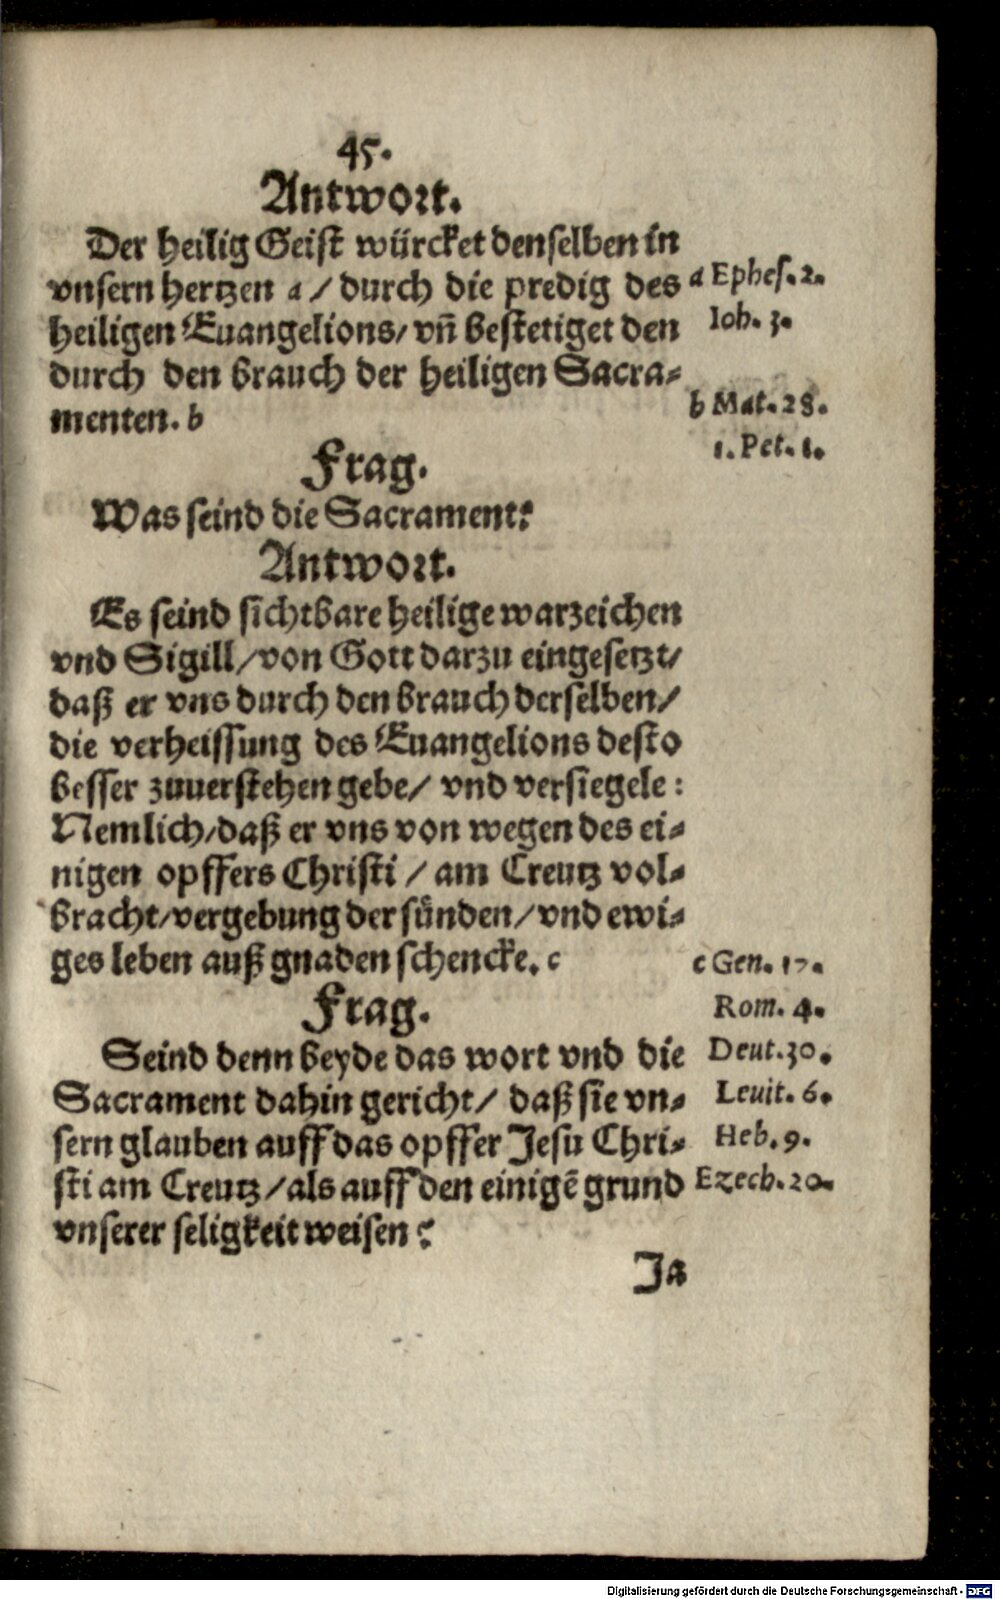 45.
Antwort.
Der heilig Geist würcket denselben in
vnsern hertzen a / durch die predig des
heiligen Euangelions/ vñ bestetiget den
durch den brauch der heiligen Sacra-
menten. b
a Ephes. 2.
Ioh. 3.
b Mat. 28.
1. Pet. 1.
Frag.
Was seind die Sacrament?
Antwort.
Es seind sichtbare heilige warzeichen
vnd Sigill/ von Gott darzu eingesetzt/
daß er vns durch den brauch derselben/
die verheissung des Euangelions desto
besser zuuerstehen gebe/ vnd versiegele:
Nemlich/ daß er vns von wegen des ei-
nigen opffers Christi / am Creutz vol-
bracht/ vergebung der sünden/ vnd ewi-
ges leben auß gnaden schencke. c
c Gen. 17.
Rom. 4.
Deut. 30.
Leuit. 6.
Heb. 9.
Ezech. 20.
Frag.
Seind denn beyde das wort vnd die
Sacrament dahin gericht/ daß sie vn-
sern glauben auff das opffer Jesu Chri-
sti am Creutz/ als auff den einigẽ grund
vnserer seligkeit weisen?
Ja
Digitalisierung gefördert durch die Deutsche Forschungsgemeinschaft - DFG